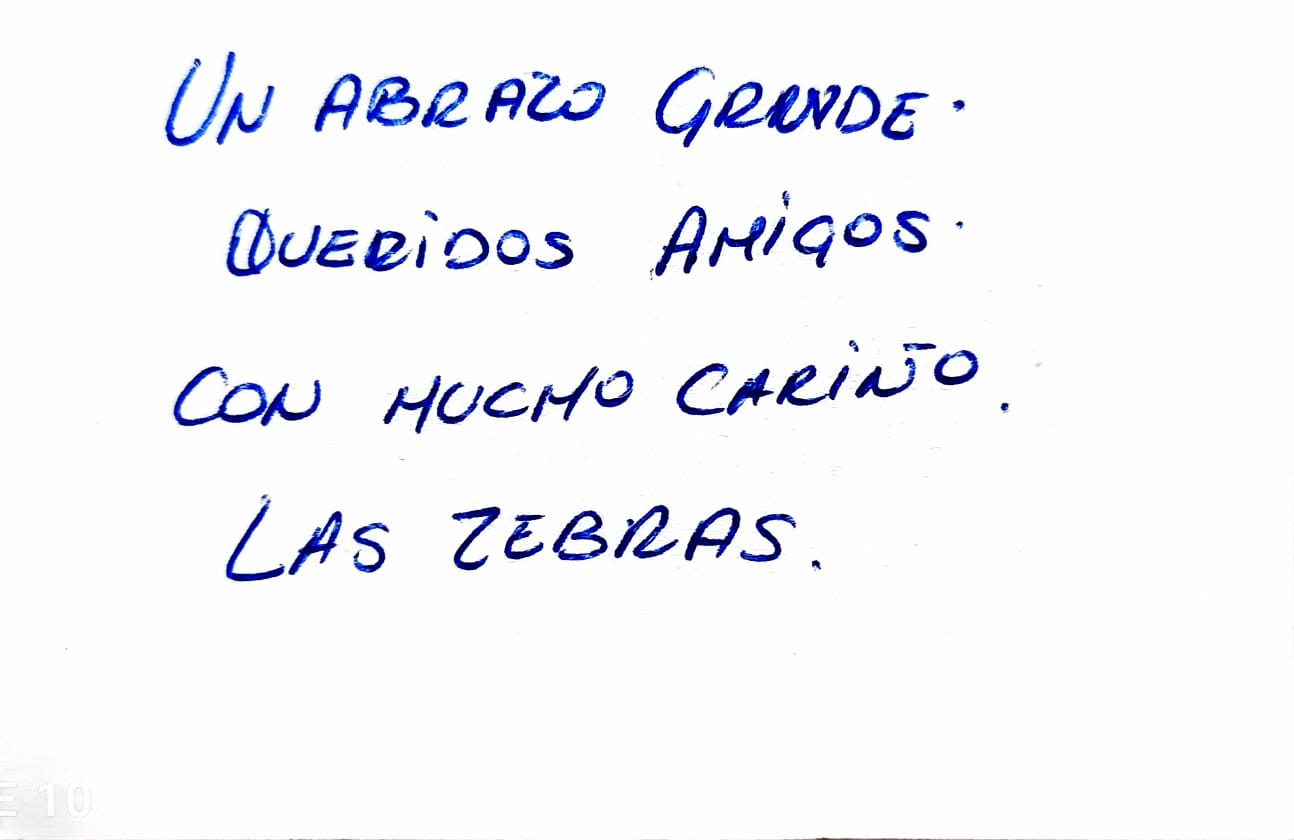 UN ABRAZO GRANDE.
QUERiDOS AMiGOS.
CON MUCHO CARiÑO.
LAS ZEBRAS.
E 10